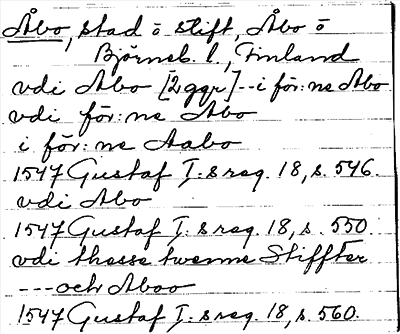 Åbo, stad o stift, Åbo o
Björneb. l., Finland
vdi Åbo [2 ggr] -- i för:ne Åbo
vdi för:ne Åbo
i för:ne Aabo
1547 Gustaf I:s reg. 18, s. 546.
vdi Åbo
1547 Gustaf I:s reg. 18, s. 550.
vdi thesse twenne Stiffter
--- och Aboo
1547 Gustaf I:s reg. 18, s. 560.